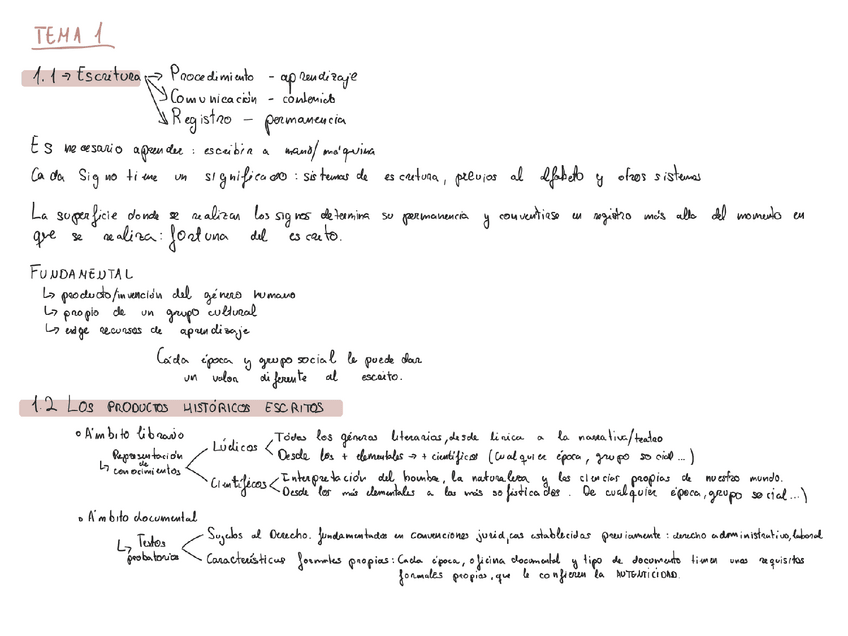 TEMA 1
1.1 → Escritura → Procedimiento - aprendizaje
Comunicación - contenido
Registro - permanencia
Es necesario aprender : escribir a mano/máquina
Cada Signo tiene un significado : sistemas de escritura, previos al alfabeto y otros sistemas
La superficie donde se realizan los signos determina su permanencia y convertirse en registro más alla del momento en
que se realiza : fortuna del escrito.
FUNDAMENTAL
↳ producto/invención del género humano
↳ propio de un grupo cultural
↳ exige recursos de aprendizaje
Cada época y grupo social le puede dar
un valor diferente al escrito.
1.2 LOS PRODUCTOS HISTÓRICOS ESCRITOS
° Ámbito librario
↳ Representación de conocimientos
Lúdicos < Todos los géneros literarios, desde lírica a la narrativa/teatro
Desde los + elementales → + científicos (Cualquier época, grupo social ...)
Científicos < Interpretación del hombre, la naturaleza y las ciencias propias de nuestro mundo.
Desde los más elementales a los más sofisticados . De cualquier época, grupo social ...)
° Ámbito documental
↳ Textos probatorios
Sujetos al Derecho. fundamentados en convenciones jurídicas establecidas previamente : derecho administrativo, laboral
Características formales propias : Cada época, oficina documental y tipo de documento tienen unos requisitos
formales propios, que le confieren la AUTENTICIDAD.